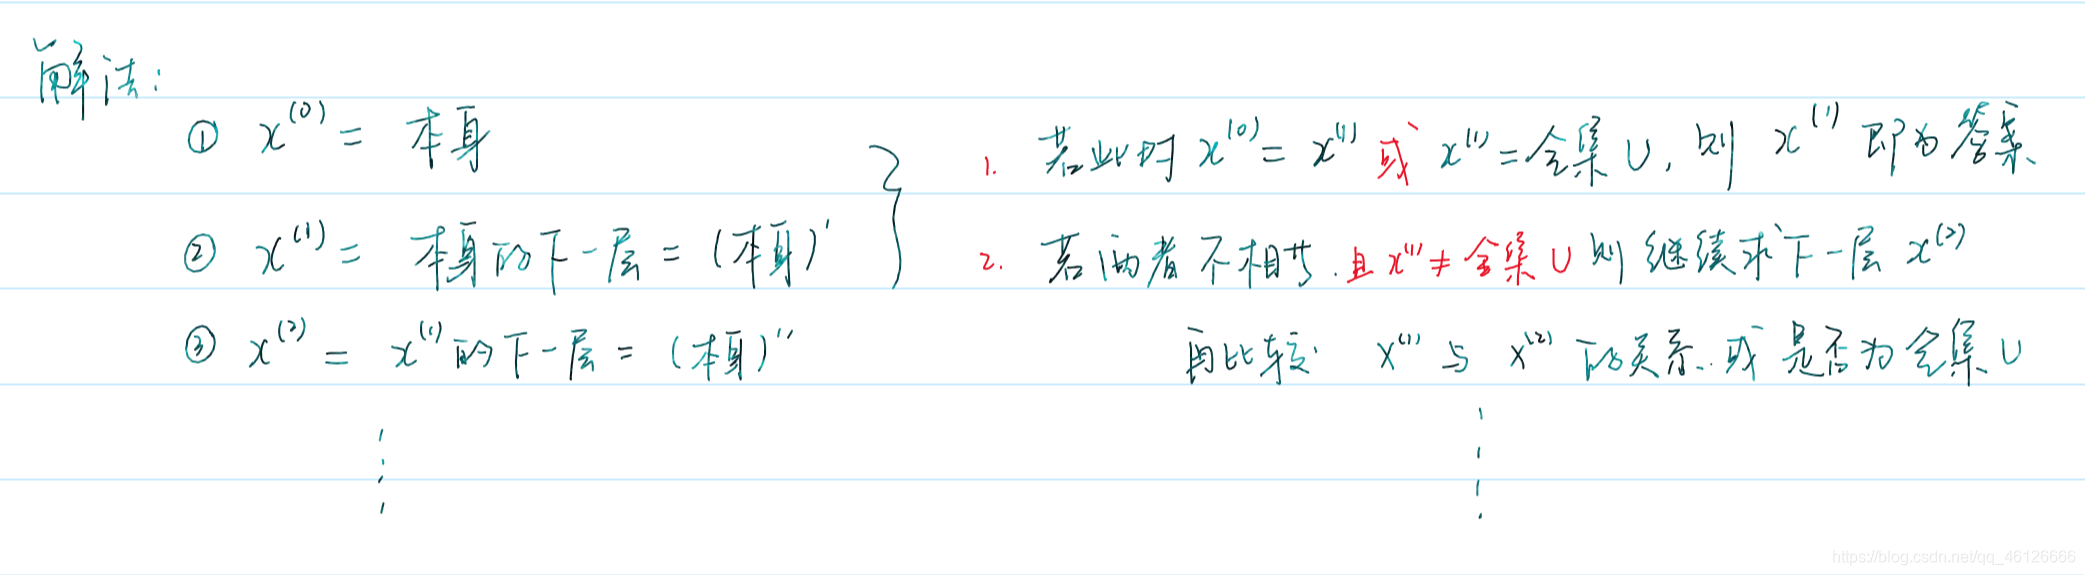 解法:
① x^(0) = 本身
② x^(1) = 本身的下一层 = (本身)'
③ x^(2) = x^(1)的下一层 = (本身)''
1. 若此时 x^(0) = x^(1) 或 x^(1) = 全集 U, 则 x^(1) 即为答案
2. 若两者不相等. 且 x^(1) ≠ 全集 U 则 继续求下一层 x^(2)
再比较 x^(1) 与 x^(2) 的关系. 或是否为全集 U
https://blog.csdn.net/qq_46126666